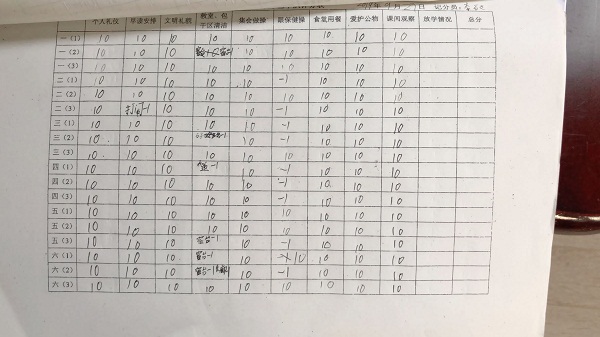 个人礼仪 早读安排 文明礼貌 教室、包干区清洁 集会做操 眼保健操 食氢用餐 爱护公物 课间观察 放学情况 总分
一（1） 10 10 10 10 10 10 10 10 10
一（2） 10 10 10 -1 10 10 10 10 10
一（3） 10 10 10 10 10 10 10 10 10
二（1） 10 10 10 10 10 -1 10 10 10
二（2） 10 10 10 10 10 10 10 10 10
二（3） 10 -1 10 10 10 -1 10 10 10
三（1） 10 10 10 10 10 -1 10 10 10
三（2） 10 10 10 -1 10 -1 10 10 10
三（3） 10 10 10 10 10 10 10 10 10
四（1） 10 10 10 -1 10 -1 10 10 10
四（2） 10 10 10 10 10 -1 10 10 10
四（3） 10 10 10 10 10 -1 10 10 10
五（1） 10 10 10 10 10 10 10 10 10
五（2） 10 10 10 10 10 -1 10 10 10
五（3） 10 10 10 窗台-1 10 -1 10 10 10
六（1） 10 10 10 窗台-1 10 10 10 10 10
六（2） 10 10 10 窗台-1 10 -1 10 10 10
六（3） 10 10 10 10 10 10 10 10 10